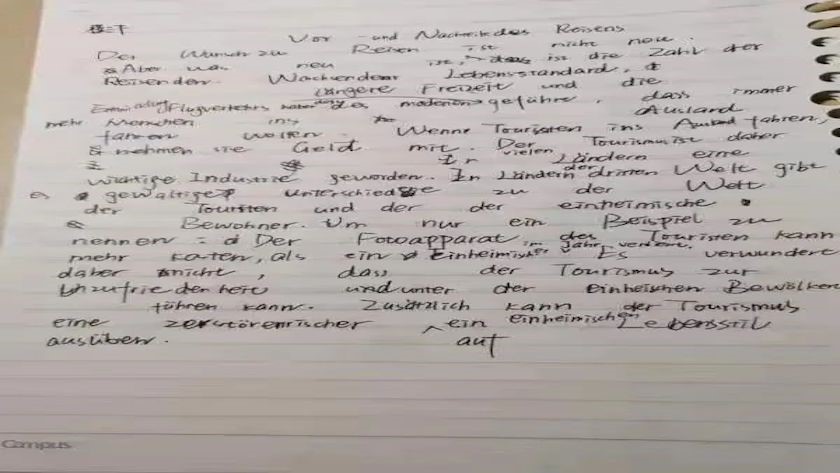 Vor - und Nachteile des Reisens
Der Wunsch zu Reisen ist nicht neu.
Aber was neu ist, ist die Zahl der
Reisenden. Wachsender Lebensstandard,
längere Freizeit und die
Entwicklung Flugverkehrs des modernen geführt, dass immer
mehr Menschen ins Ausland
fahren wollen. Wenn Touristen ins Ausland fahren,
nehmen sie Geld mit. Der Tourismus ist daher
In vielen Ländern eine
wichtige Industrie geworden. In Ländern der dritten Welt gibt
gewaltige unterschiede zu der Welt
der Touristen und der der einheimische
Bewohner. Um nur ein Beispiel zu
nennen: Der Fotoapparat des Touristen kann
mehr kosten, als ein Einheimischer im Jahr verdient. Es verwundert
daher nicht, dass der Tourismus zur
Unzufriedenheit und unter der einheischen Bevölker
führen kann. Zusätzlich kann der Tourismus
eine zerstörenrischer ein einheimischen Lebensstil
ausüben. auf
Campus